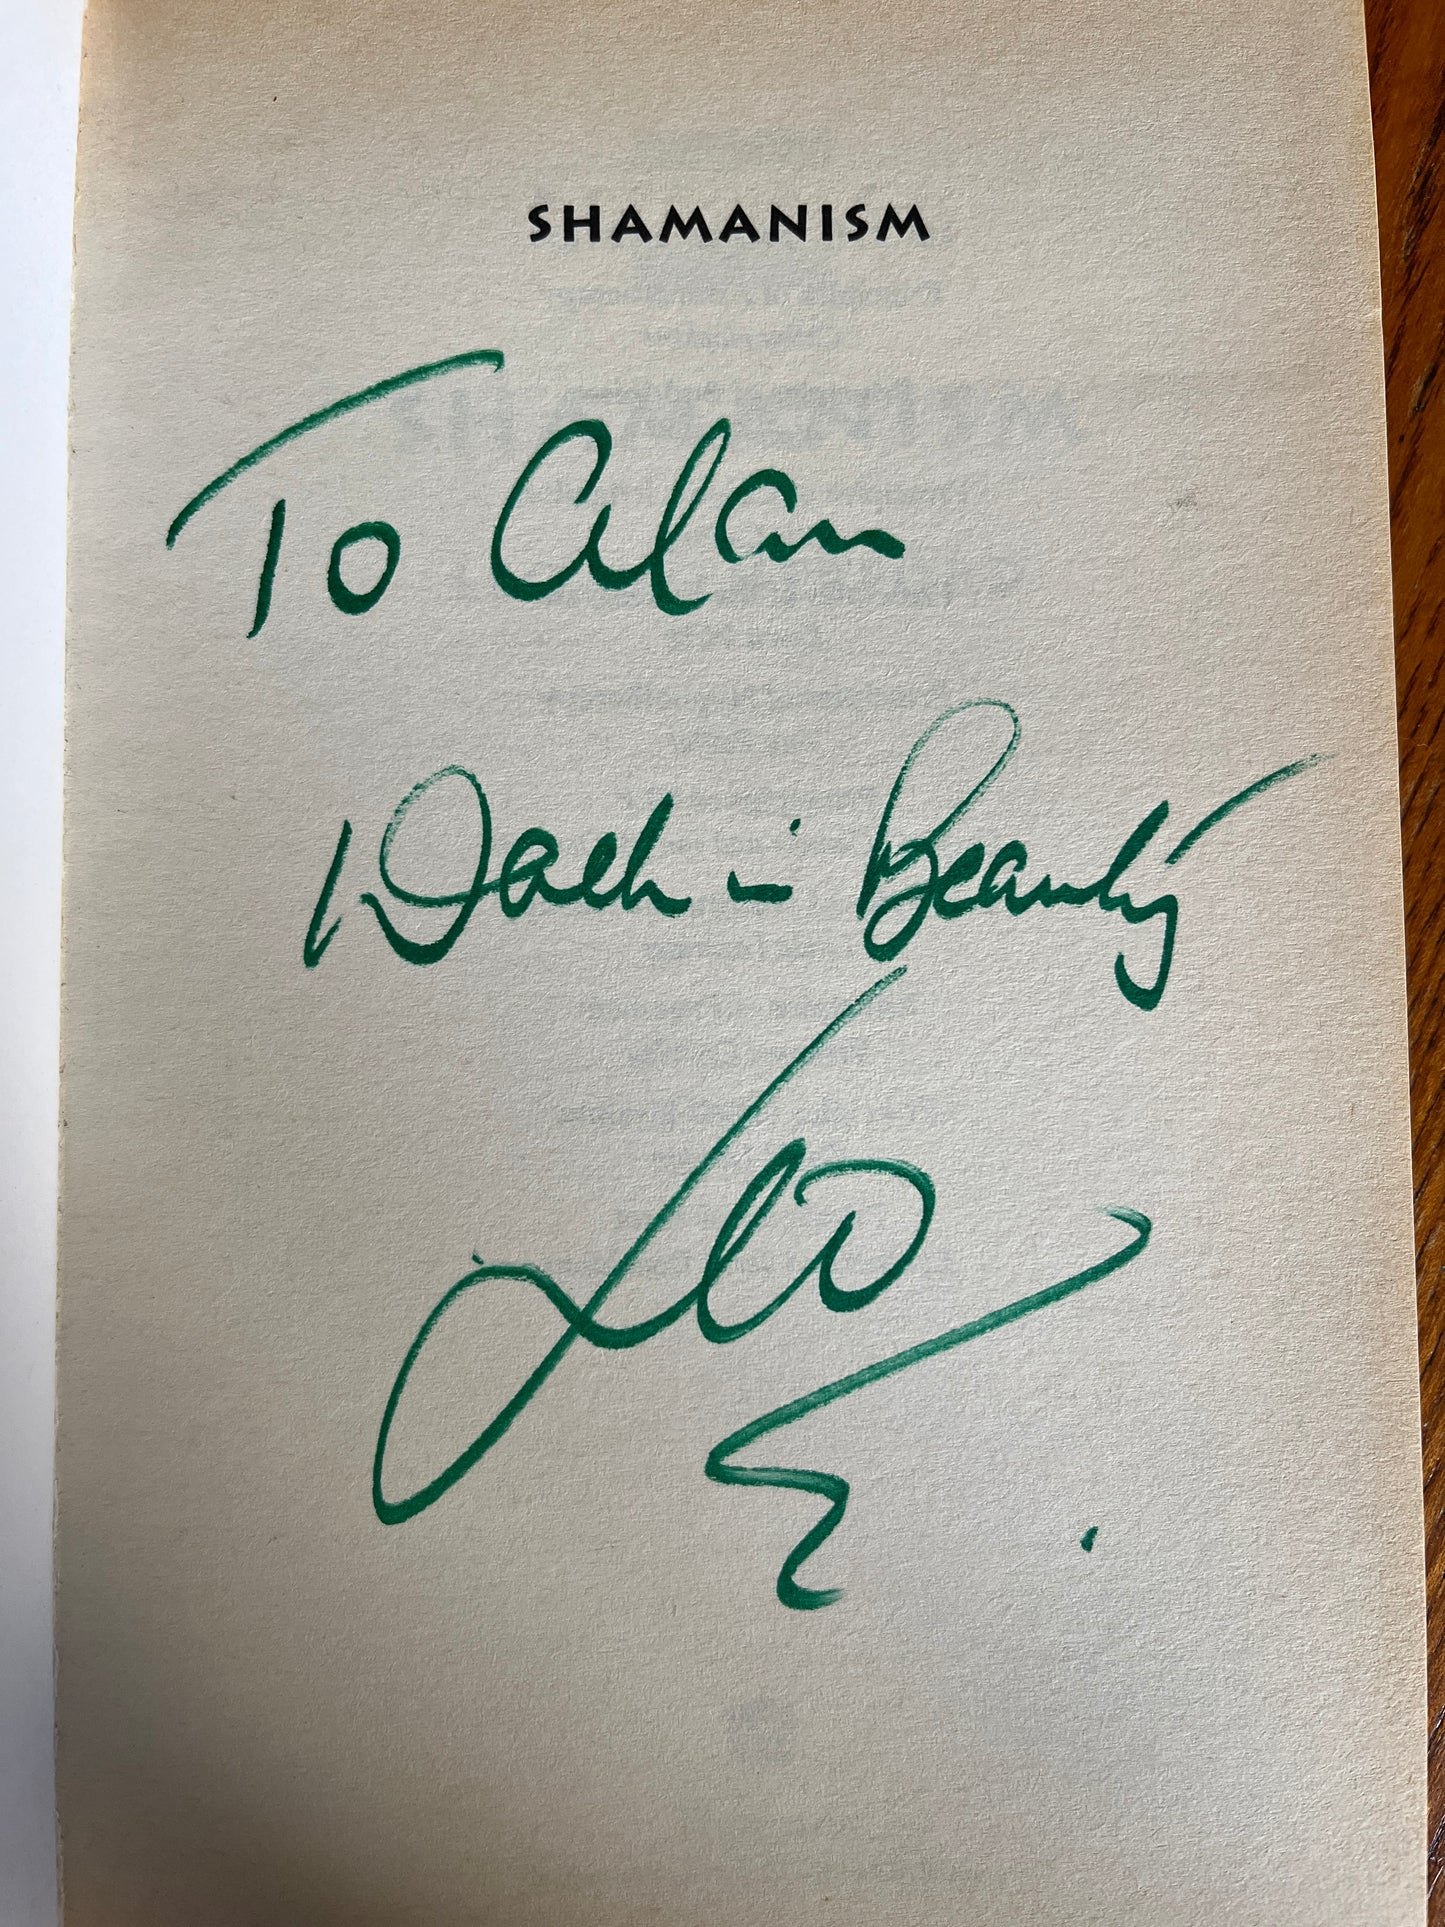 SHAMANISM
To Alan
Walk in Beauty
Leo